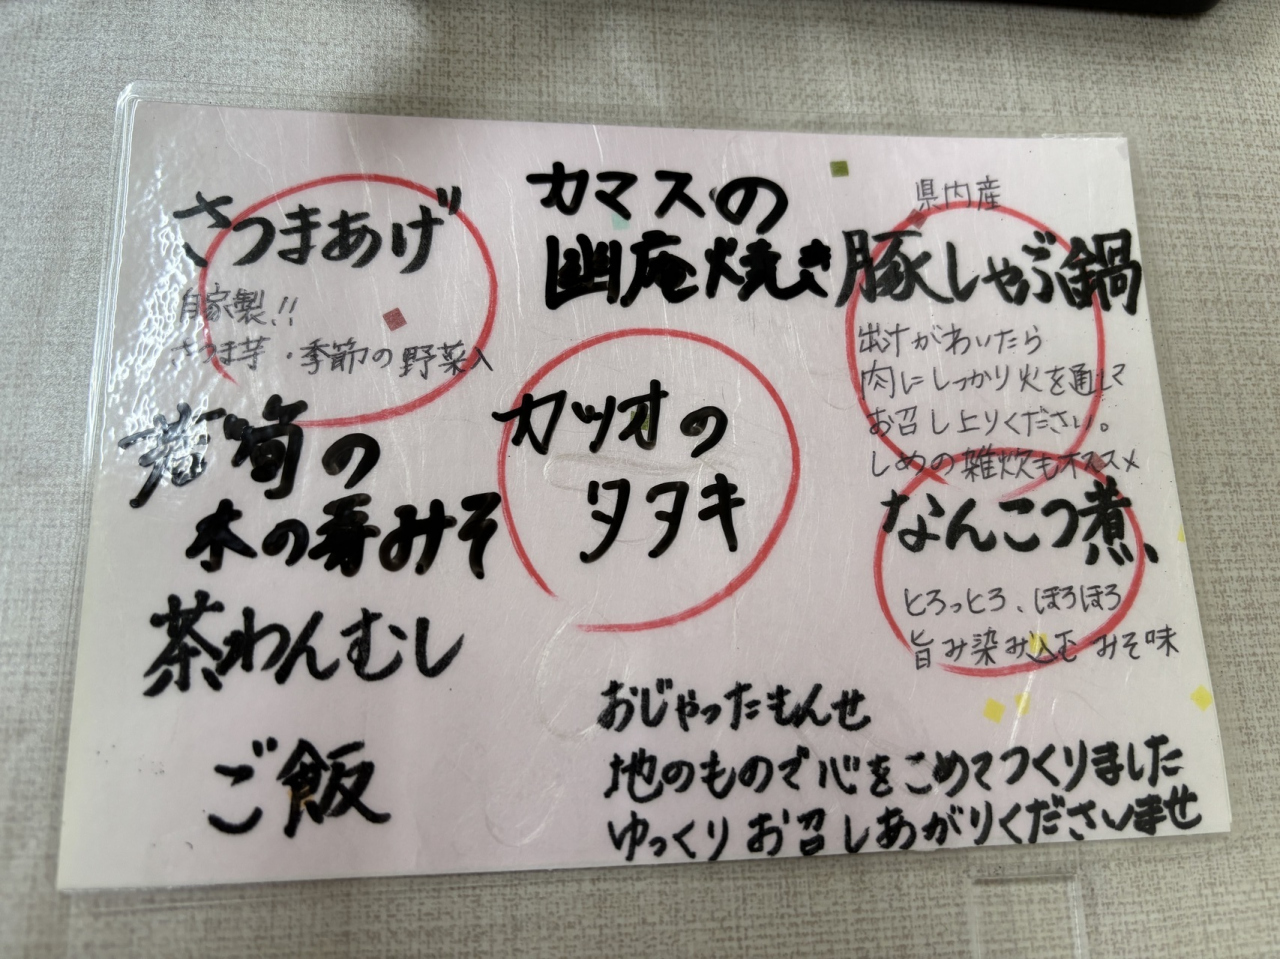 さつまあげ
自家製!!
さつま芋・季節の野菜入
若筍の
木の芽みそ
茶わんむし
ご飯
カマスの
幽庵焼き
カツオの
タタキ
県内産
豚しゃぶ鍋
出汁がわいたら
肉にしっかり火を通して
お召し上りください。
しめの雑炊もオススメ
なんこつ煮
とろっとろ、ほろほろ
旨み染み込む みそ味
おじゃったもんせ
地のもので心をこめてつくりました
ゆっくりお召しあがりくださいませ